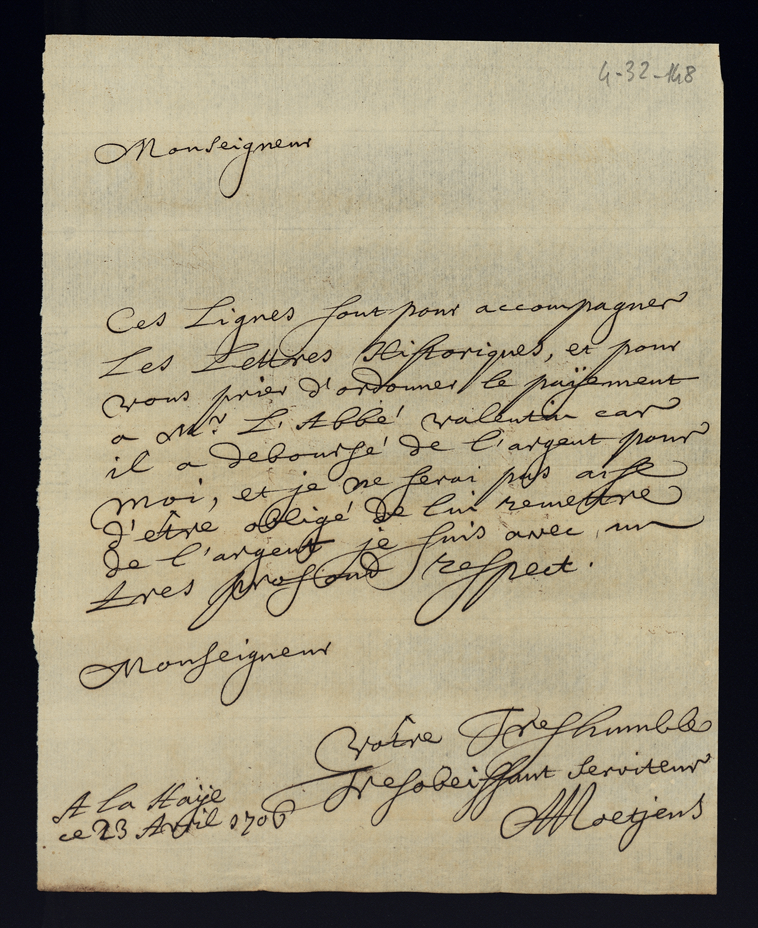 4-32-148
Monseigneur
Ces Lignes sont pour accompagner
Les Lettres Historiques, et pour
vous prier d'ordonner le païement
a Mr. L'Abbé valentin car
il a deboursé de l'argent pour
moi, et je ne serai pas aise
d'être obligé de lui remettre
de l'argent je suis avec un
tres profond respect.
Monseigneur
votre Treshumble
Tresobeissant serviteur
AMoetjens
A La Haÿe
ce 23 Avril 1706